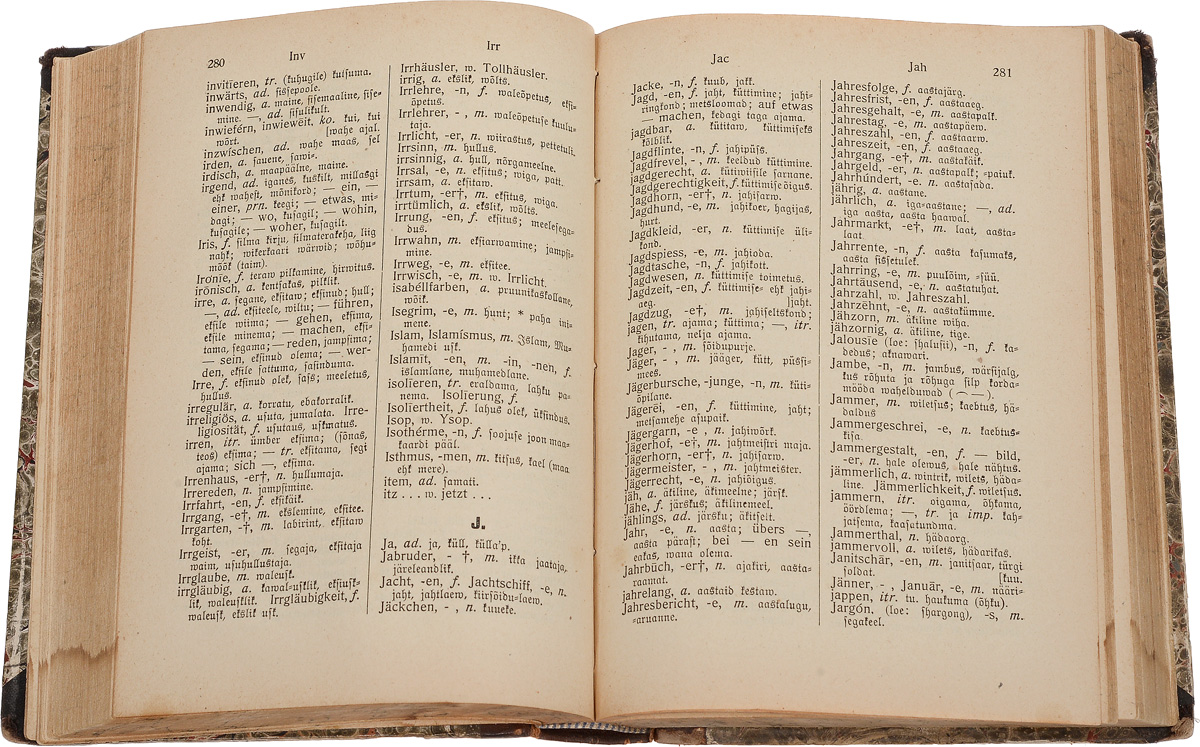 280
Inv
Irr
invitieren, tr. (kuhugile) kutsuma.
inwärts, ad. sissepoole.
inwendig, a. maine, sisemaaline, sise-
mine. —, ad. sisulikult.
inwieférn, inwieweit, ko. kui, kui
wõrt. [wahe ajal.
inzwíschen, ad. wahe maas, sel
irden, a. sauene, sawi-.
irdisch, a. maapäälne, maine.
irgend, ad. iganes, kuskilt, millasgi
ehk wahest, mõnikord; — ein, —
einer, prn. keegi; — etwas, mi-
dagi; — wo, kusagil; — wohin,
kusagile; — woher, kusagilt.
Iris, f. silma kirju, silmaterakeha, liig
nahk; wikerkaari wärwid; wõhu-
mõõk (taim).
Ironíe, f. teraw pilkamine, hirwitus.
irónisch, a. kentsakas, pilklik.
irre, a. segane, eksitaw; eksinud; hull;
—, ad. eksiteele, wiltu; — führen,
eksile wiima; — gehen, eksima,
eksile minema; — machen, eksi-
tama, segama; — reden, jampsima;
— sein, eksinud olema; — wer-
den, eksile sattuma, sasinduma.
Irre, f. eksinud olek, sass; meeletus,
hullus.
irregulär, a. korratu, ebakorralik.
irreligiös, a. usuta, jumalata. Irre-
ligiosität, f. usutaus, uskmatus.
irren, itr. ümber eksima; (sõnas,
teos) eksima; — tr. eksitama, segi
ajama; sich —, eksima.
Irrenhaus, -er†, n. hullumaja.
Irrereden, n. jampsimine.
Irrfahrt, -en, f. eksikäik.
Irrgang, -e†, m. ekslemine, eksitee.
Irrgarten, -†, m. labirint, eksitaw
koht.
Irrgeist, -er, m. segaja, eksitaja
waim, usuhullustaja.
Irrglaube, m. waleusk.
irrgläubig, a. kawal-usklik, eksiusk-
lik, waleusklik. Irrgläubigkeit, f.
waleusk, ekslik usk.
Irrhäusler, w. Tollhäusler.
irrig, a. ekslik, wõlts.
Irrlehre, -n, f. waleõpetus, eksi-
õpetus.
Irrlehrer, - , m. waleõpetuse kuulu-
taja.
Irrlicht, -er, n. wiirastus, pettetuli.
Irrsinn, m. hullus.
irrsinnig, a. hull, nõrgameelne.
Irrsal, -e, n. eksitus; wiga, patt.
irrsam, a. eksitaw.
Irrtum, -er†, m. eksitus, wiga.
irrtümlich, a. ekslik, wõlts.
Irrung, -en, f. eksitus; meelesega-
dus.
Irrwahn, m. eksiarwamine; jampsi-
mine.
Irrweg, -e, m. eksitee.
Irrwisch, -e, m. w. Irrlicht.
isabéllfarben, a. pruunikaskollane,
wõik.
Isegrim, -e, m. hunt; * paha ini-
mene.
Islam, Islamísmus, m. Islam, Mu-
hamedi usk.
Islamít, -en, m. -in, -nen, f.
islamlane, muhamedlane.
isolíeren, tr. eraldama, lahku pa-
nema. Isolíerung, f.
Isoliertheit, f. lahus olek, üksindus.
Isop, w. Ysop.
Isothérme, -n, f. soojuse joon maa-
kaardi pääl.
Isthmus, -men, m. kitsus, kael (maa
ehk mere).
item, ad. samati.
itz . . . w. jetzt . . .
J.
Ja, ad. ja, küll, külla'p.
Jabruder, - †, m. ikka jaataja,
järeleandlik.
Jacht, -en, f. Jachtschiff, -e, n.
jaht, jahtlaew, kiirsõidu-laew.
Jäckchen, - , n. kuueke.
Jac
Jah
281
Jacke, -n, f. kuub, jakk.
Jagd, -en, f. jaht, küttimine; jahi-
ringkond; metsloomad; auf etwas
— machen, kedagi taga ajama.
jagdbar, a. kütitaw, küttimiseks
kõlblik.
Jagdflinte, -n, f. jahipüss.
Jagdfrevel, - , m. keeldud küttimine.
jagdgerecht, a. kütiwiisile sarnane.
Jagdgerechtigkeit, f. küttimiseõigus.
Jagdhorn, -er†, n. jahisarw.
Jagdhund, -e, m. jahikoer, hagijas,
hurt.
Jagdkleid, -er, n. küttimise üli-
kond.
Jagdspiess, -e, m. jahioda.
Jagdtasche, -n, f. jahikott.
Jagdwesen, n. küttimise toimetus.
Jagdzeit, -en, f. küttimise- ehk jahi-
aeg. [jaht.
Jagdzug, -e†, m. jahiseltskond;
jagen, tr. ajama; küttima; —, itr.
kihutama, nelja ajama.
Jager, - , m. sõidupurje.
Jäger, - , m. jääger, kütt, püssi-
mees.
Jägerbursche, -junge, -n, m. küti-
õpilane.
Jägeréi, -en, f. küttimine, jaht;
metsamehe asupaik.
Jägergarn, -e , n. jahiwõrk.
Jägerhof, -e†, m. jahtmeistri maja.
Jägerhorn, -er†, n. jahisarw.
Jägermeister, - , m. jahtmeister.
Jägerrecht, -e, n. jahiõigus.
jäh, a. äkiline, äkimeelne; järsk.
Jähe, f. järskus; äkilinemeel.
jählings, ad. järsku; äkitselt.
Jahr, -e, n. aasta; übers —,
aasta pärast; bei — en sein
eakas, wana olema.
Jahrbúch, -er†, n. ajakiri, aasta-
raamat.
jahrelang, a. aastaid kestaw.
Jahresbericht, -e, m. aastalugu,
-aruanne.
Jahresfolge, f. aastajärg.
Jahresfrist, -en, f. aastaaeg.
Jahresgehalt, -e, m. aastapalk.
Jahrestag, -e, m. aastapäew.
Jahreszahl, -en, f. aastaarw.
Jahreszeit, -en, f. aastaaeg.
Jahrgang, -e†, m. aastakäik.
Jahrgeld, -er, n. aastapalk; -paiuk.
Jahrhúndert, -e, n. aastasada.
jährig, a. aastane.
jährlich, a. iga-aastane; —, ad.
iga aasta, aasta haawal.
Jahrmarkt, -e†, m. laat, aasta-
laat.
Jahrrente, -n, f. aasta kasumaks,
aasta sissetulek.
Jahrring, -e, m. puulõim, -süü.
Jahrtáusend, -e, n. aastatuhat.
Jahrzahl, w. Jahreszahl.
Jahrzéhnt, -e, n. aastakümme.
Jähzorn, m. äkiline wiha.
jähzornig, a. äkiline, tige.
Jalousíe (loe: shalusii), -n, f. ka-
bedus; aknawari.
Jambe, -n, m. jambus, wärsijalg,
kus rõhuta ja rõhuga silp korda-
mööda waheldwad (⏑ —).
Jammer, m. wiletsus; kaebtus, hä-
daldus
Jammergeschrei, -e, n. kaebtus-
kisa.
Jammergestalt, -en, f. — bild,
-er, n. hale olewus, hale nähtus.
jämmerlich, a. wintrik, wilets, häda-
line. Jämmerlichkeit, f. wiletsus.
jammern, itr. oigama, õhkama,
öördlema; —, tr. ja imp. kah-
jatsema, kaasutundma.
Jammerthal, n. hädaorg.
jammervoll, a. wilets, hädarikas.
Janitschár, -en, m. janitsaar, türgi
soldat. [kuu.
Jänner, - , Január, -e, m. nääri-
jappen, itr. tu. haukuma (õhku).
Jargón, (loe: shargong), -s, m.
segakeel.